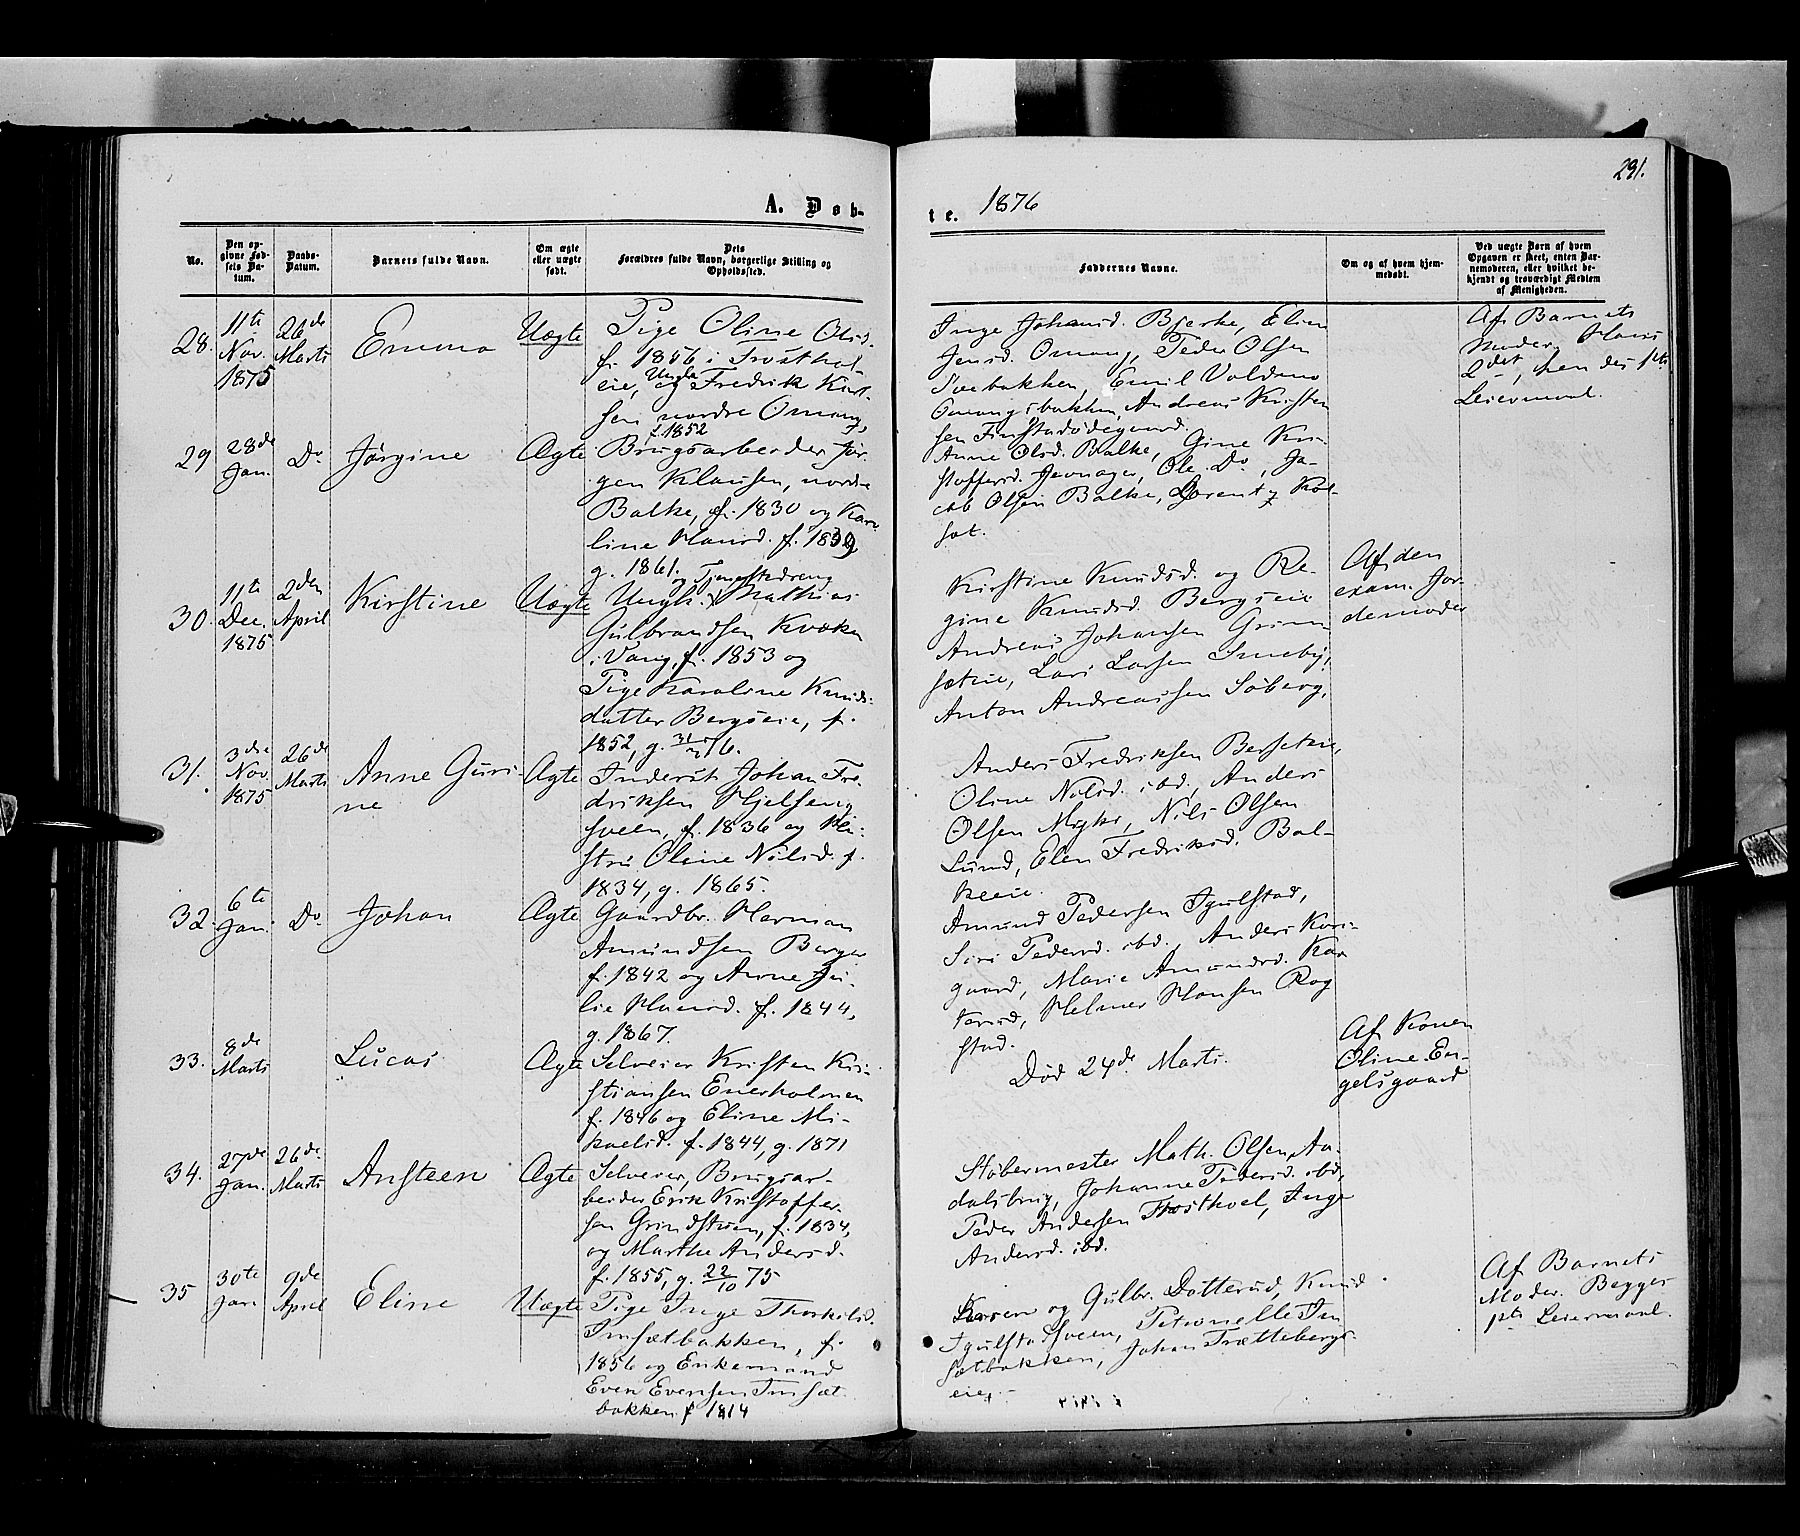 291.
A. Døb-
te. 1876
No.
Den op-
givne Fød-
sels Da-
tum.
Daabs-
Datum.
Barnets fulde Navn.
Om ægte
eller uægte
født.
Dets
Forældres fulde Navn, borgerlige Stilling og
Opholdssted.
Faddernes Navne.
Om og af hvem hjem-
medøbt.
Ved uægte Børn af hvem
Opgaven er skeet, enten Bar-
nemoderen, eller hvilket be-
kjendt og troværdigt Medlem
af Menigheden.
28.
11te
Nov.
1875
26de
Marts
Emma
Uægte
Pige Oline Olsd.
f. 1856 i Frosthol-
eie, og Ungk. Fredrik Karl-
sen nordre Omang,
f. 1852
Inge Johansd. Bjerke, Elen
Jensd. Omang, Peder Olsen
Svebakken, Emil Voldmo
Omangsbakken, Andreas Kristen
sen Finstadødegaard.
Af Barnets
Moder. Hans
2det, hendes 1ste
Leiermaal.
29
28de
Jan.
Do
Jørgine
Ægte
Brugsarbeider Jør-
gen Klausen, nordre
Balke, f. 1830 og Karo
line Hansd. f. 1839,
g. 1861.
Anne Olsd. Balke, Gine Kri-
stoffersd. Jevnager, Ole Do, Ja-
cob Olsen Balke, Lorentz Kol-
sat.
30.
11te
Dec.
1875
2den
April
Kirstine
Uægte
Ungk. og Tjenestedreng Mathias
Gulbrandsen Kvæken
i Vang, f. 1853 og
Pige Karoline Knuds-
datter Bergseie, f.
1852, g. 31/7 76.
Kirstine Knudsd. og Re-
gine Knudsd. Bergseie
Andreas Johansen Grim
sæteie, Lars Larsen Smeby,
Anton Andreassen Søberg.
Af den
exam. Jor-
demoder
31.
3die
Nov.
1875
26de
Marts
Anne Guri-
ne
Ægte
Inderst Johan Fre-
driksen Hjelseng
sveen, f. 1836 og Hu-
stru Oline Nilsd. f.
1834, g. 1865.
Anders Fredriksen Berseteie,
Oline Nilsd. ibd., Anders
Olsen Myhr, Nils Olsen
Lund, Elen Fredriksd. Bal-
keeie.
32.
6te
Jan.
Do
Johan
Ægte
Gaardbr. Herman
Amundsen Berger
f. 1842 og Anne Ju-
lie Hansd. f. 1844,
g. 1867.
Amund Pedersen Igulstad,
Siri Pedersd. ibd., Anders Kors-
gaard, Marie Amundsd. Kor
serud, Helmer Hansen Rog
stad.
33.
8de
Marts
Lucas
Ægte
Selveier Kristen Kri-
stiansen Enerholmen
f. 1846 og Eline Mi-
kaelsd. f. 1844, g. 1871
Død 24de Marts.
Af Konen
Oline En-
gelsgaard
34.
27de
Jan.
26de
Marts
Ansteen
Ægte
Selveier, Brugsar-
beider Erik Kristoffer-
sen Grindstuen, f. 1834,
og Marthe Andersd.
f. 1855, g. 22/10 75
Støbermester Math. Olsen, Aa-
dalsbrug, Johanne Pedersd. ibd,
Peder Andersen Frosthoel, Inge
Andersd. ibd.
35
30te
Jan
9de
April
Eline
Uægte
Pige Inge Thorkilsd.
Imsætbakken, f.
1856 og Enkemand
Even Evensen Imsæt
bakken f 1814
Karen og Gulbr. Dotterud, Knud
Igulstadsveen, Petronelle Im
sætbakken, Johan Trætteberg-
eie.
Af Barnets
Moder. Begges
1ste Leiermaal.